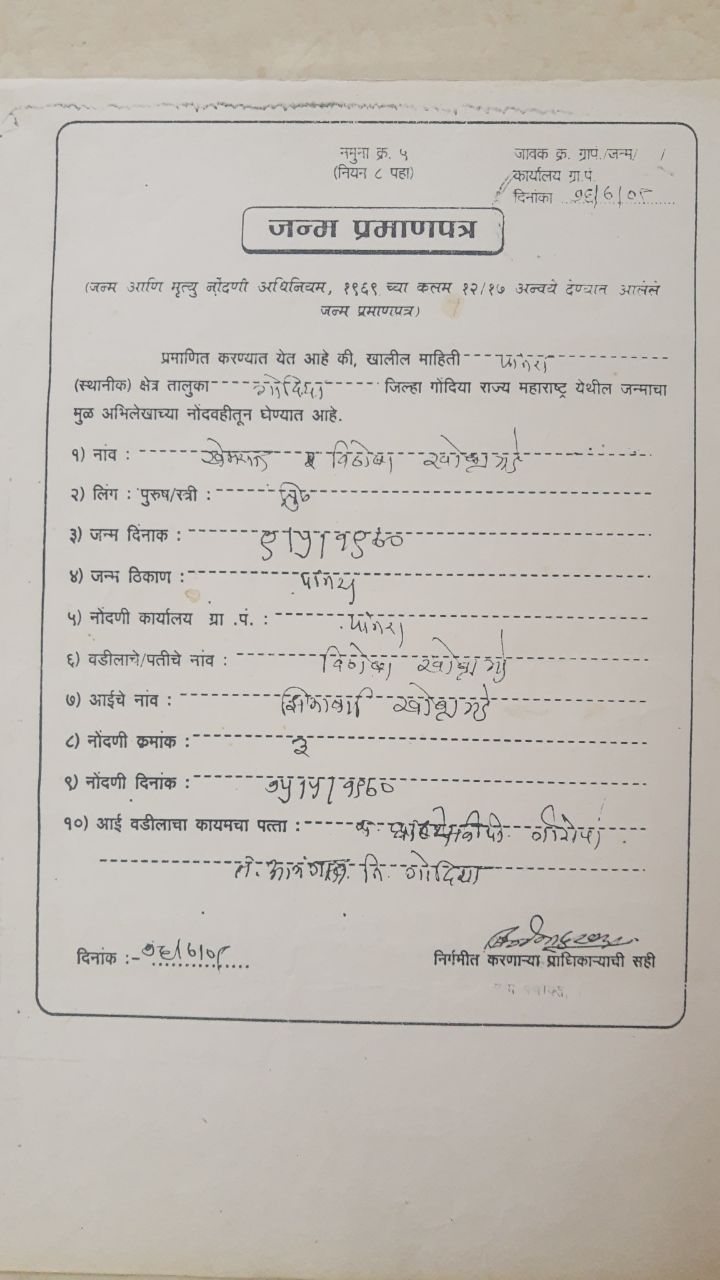 नमुना क्र. ५
(नियन ८ पहा)
जावक क्र. ग्रापं./जन्म/ /
कार्यालय ग्रा.पं.
दिनांका १६/६/०९
जन्म प्रमाणपत्र
(जन्म आणि मृत्यु नोंदणी अधिनियम, १९६९ च्या कलम १२/१७ अन्वये देण्यात आलेले
जन्म प्रमाणपत्र)
प्रमाणित करण्यात येत आहे की, खालील माहिती पांगरा
(स्थानीक) क्षेत्र तालुका गोंदिया जिल्हा गोंदिया राज्य महाराष्ट्र येथील जन्माचा
मुळ अभिलेखाच्या नोंदवहीतून घेण्यात आहे.
१) नांव : खेमराज विठोबा
२) लिंग : पुरुष/स्त्री :
३) जन्म दिंनाक : ९/५/१९८०
४) जन्म ठिकाण : पांगरा
५) नोंदणी कार्यालय ग्रा .पं. : पांगरा
६) वडीलाचे/पतीचे नांव : विठोबा
७) आईचे नांव :
८) नोंदणी क्रमांक : ३
९) नोंदणी दिनांक : १५/५/१९८०
१०) आई वडीलाचा कायमचा पत्ता :
जि. गोंदिया
दिनांक :- १६/६/०९
निर्गमीत करणाऱ्या प्राधिकाऱ्याची सही